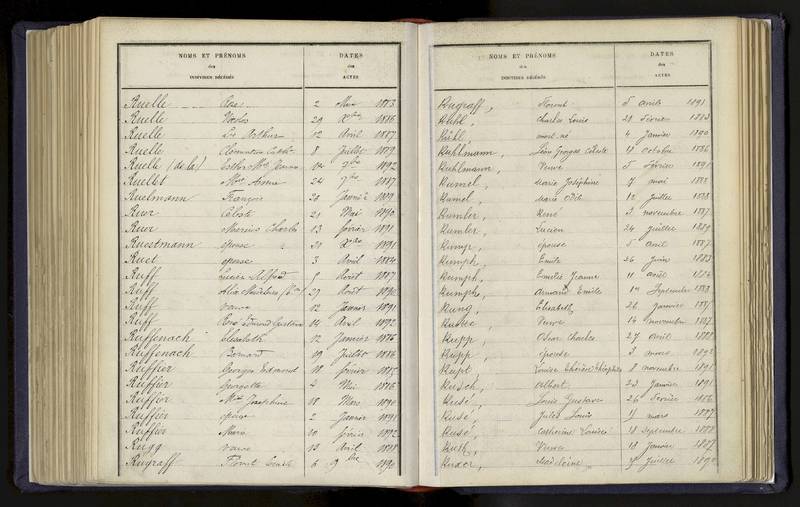 NOMS ET PRÉNOMS
des
INDIVIDUS DÉCÉDÉS
DATES
des
ACTES
Ruelle Rose 2 Mai 1883
Ruelle 29 Xbre 1886
Ruelle Arthur 12 Avril 1887
Ruelle Clémentine 8 Juillet 1879
Ruelle (de la) 14 9bre 1892
Ruellet 24 9bre 1887
Ruelmann François 28 Janvier 1879
Ruer Céleste 21 Mai 1890
Ruer Charles 13 février 1891
Ruestmann épouse 21 Xbre 1891
Ruet épouse 3 Avril 1884
Ruff Lucien Alfred 9 Août 1887
Ruff 29 Août 1890
Ruff veuve 12 Janvier 1891
Ruff René Edmond Gustave 14 Avril 1892
Ruffenach Elisabeth 12 Janvier 1886
Ruffenach Bernard 19 Juillet 1886
Ruffier Georges Edmond 18 février 1885
Ruffier Georgette 4 Mai 1886
Ruffier Joséphine 18 Mars 1890
Ruffier épouse 2 Janvier 1891
Ruffier Marie 10 février 1892
Rugg veuve 13 Avril 1888
Rugraff Florent 6 9bre 1890
NOMS ET PRÉNOMS
des
INDIVIDUS DÉCÉDÉS
DATES
des
ACTES
Rugraff, Florent 5 avril 1891
Ruhl, Charles Louis 28 Février 1883
Rühl, mort-né 4 Janvier 1890
Ruhlmann, Georges Céleste 11 Octobre 1886
Ruhlmann, Veuve 5 Février 1891
Rumel, Marie Joséphine 7 mai 1888
Rumel, Marie 12 Juillet 1888
Rumler, René 3 novembre 1887
Rumler, Lucien 24 Juillet 1889
Rump, épouse 5 avril 1887
Rumph, Emile 26 Juin 1883
Rumph, Emilie Jeanne 11 août 1886
Rumphs, Armand Emile 14 Septembre 1883
Rung, Elisabeth 26 Janvier 1887
Veuve 14 novembre 1887
Rupp, Oscar Charles 27 avril 1888
Rupp, épouse 3 mars 1892
Rupt, Louise Thérèse 8 novembre 1891
Rusch, Albert 23 Janvier 1891
Rusé, Louis Gustave 26 Février 1886
Rusé, Jules Louis 11 mars 1887
Rusé, Catherine Louise 18 Septembre 1888
Ruth, Veuve 18 Janvier 1887
Ruxer, Madeleine 7 Juillet 1892